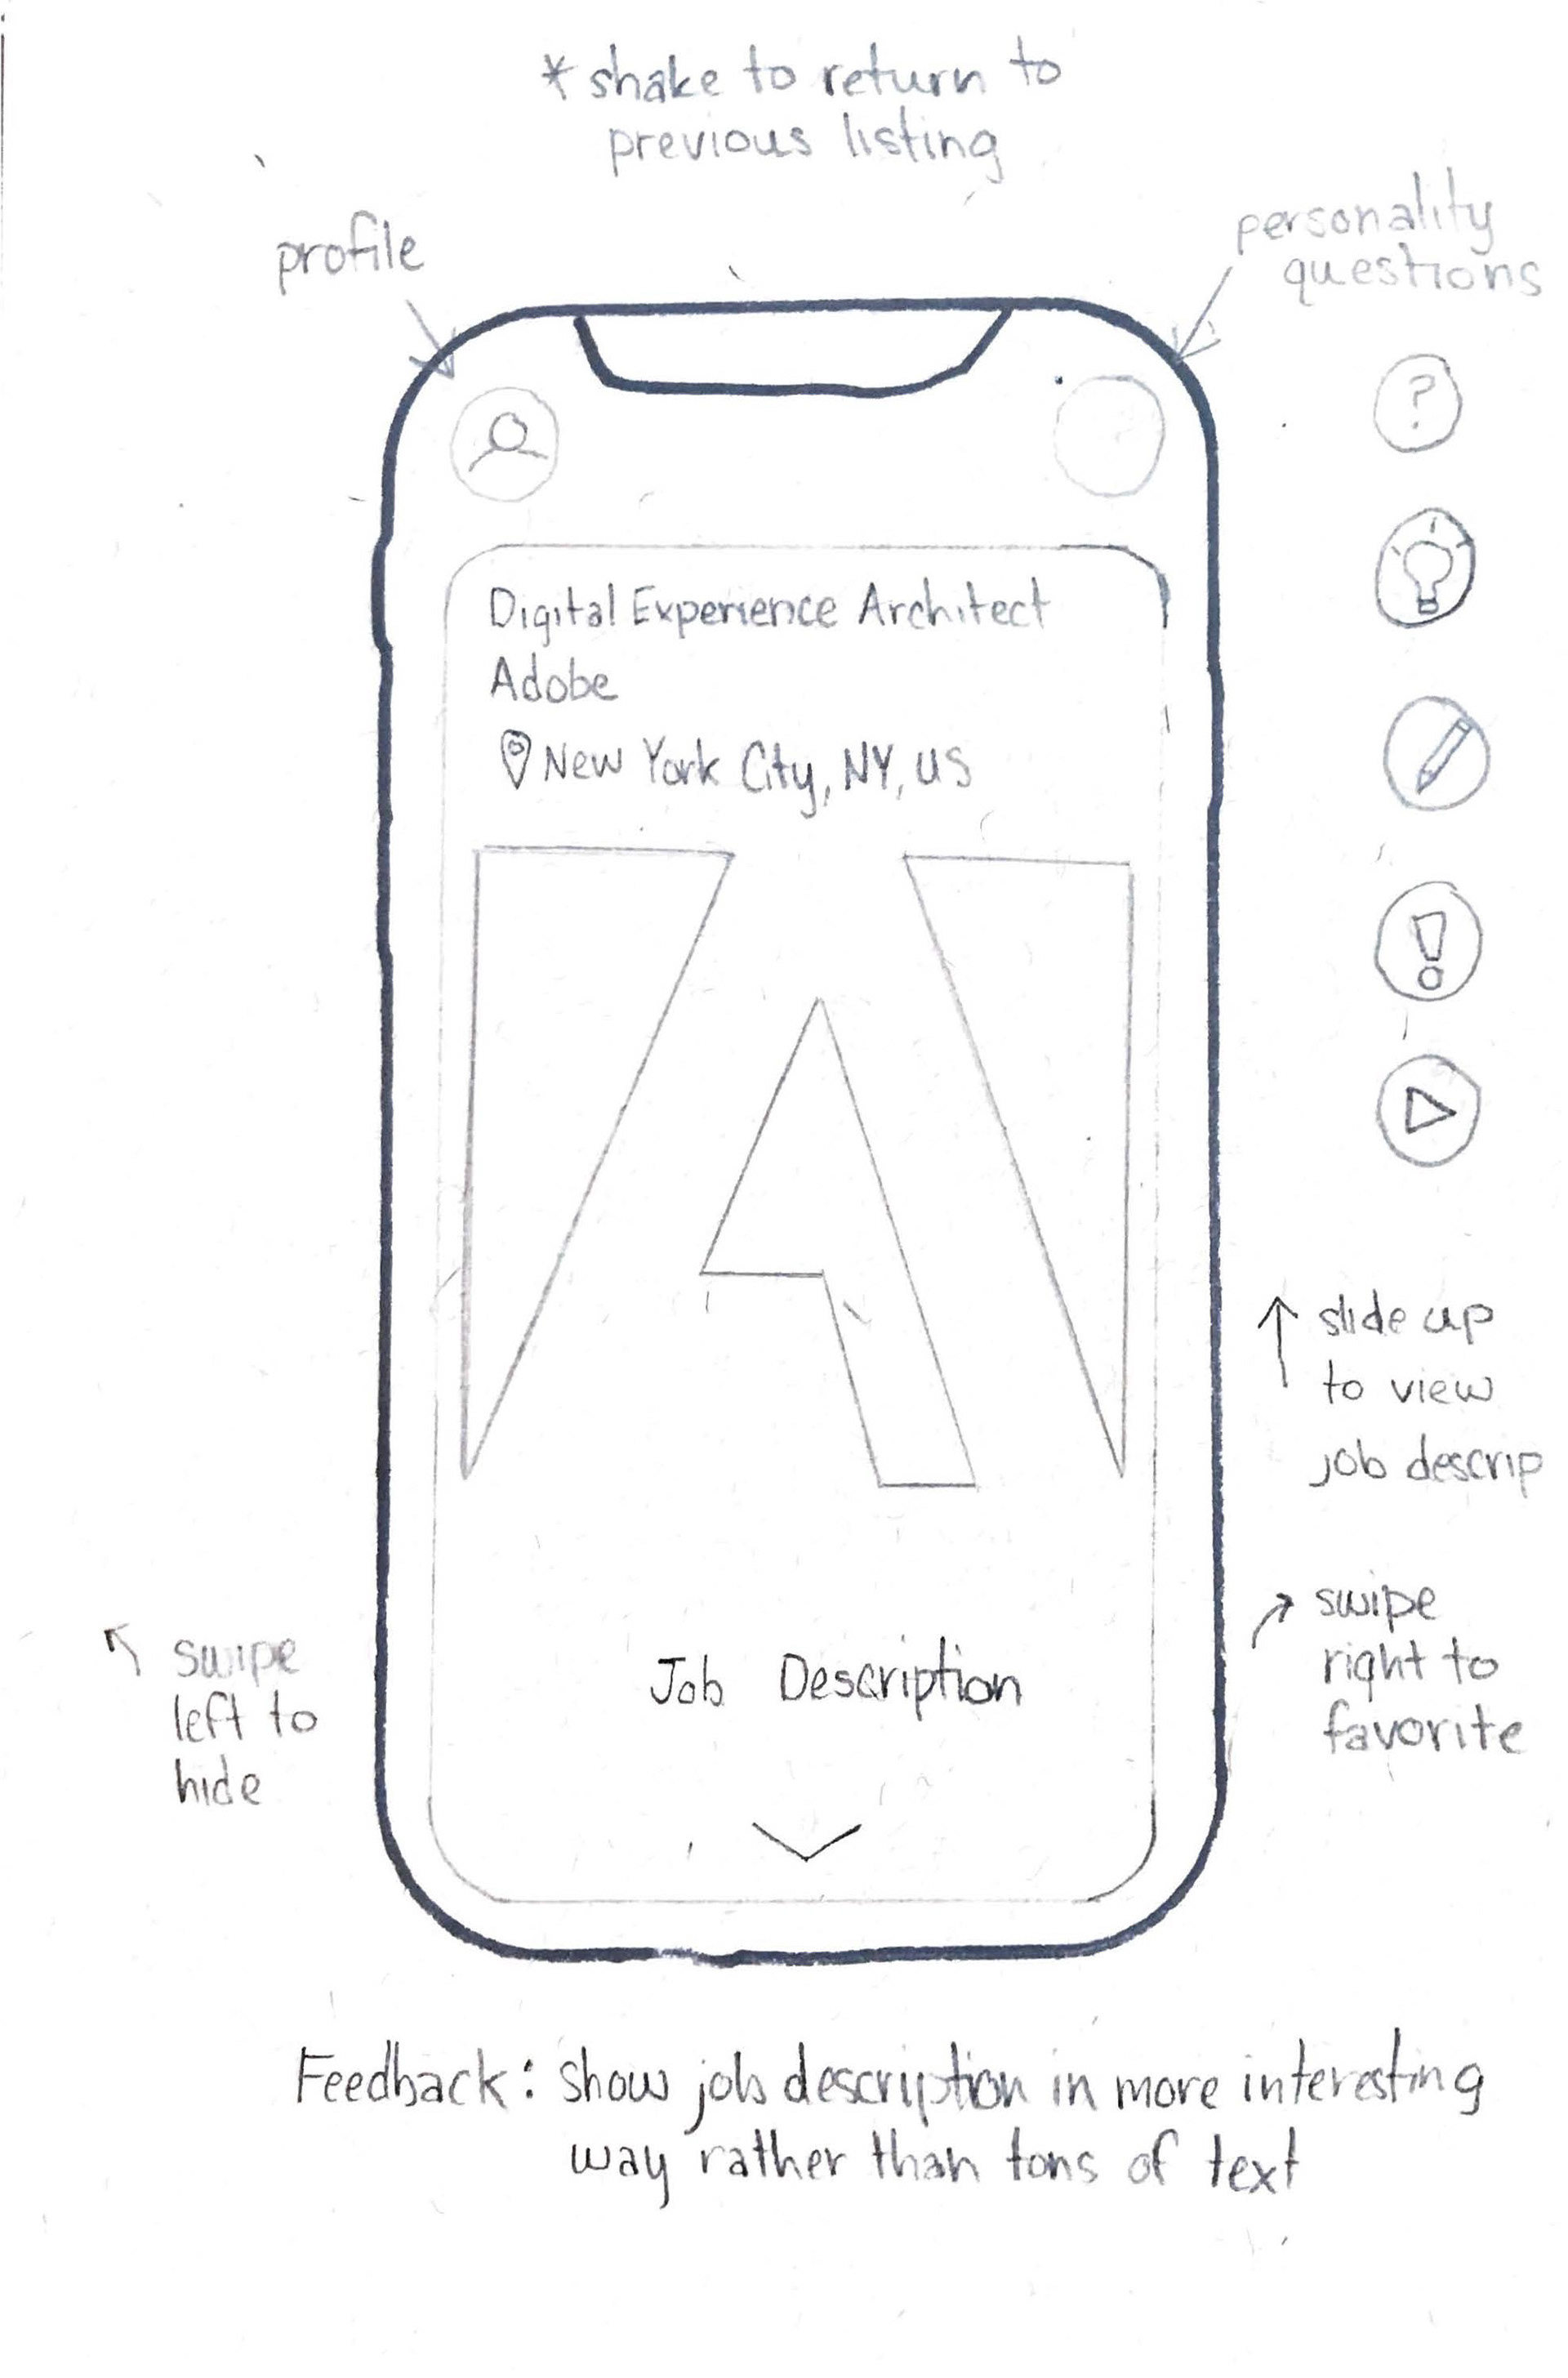 * shake to return to
previous listing
profile
personality
questions
?
Digital Experience Architect
Adobe
New York City, NY, US
!
slide up
to view
job descrip
swipe
left to
hide
Job Description
swipe
right to
favorite
Feedback: show job description in more interesting
way rather than tons of text